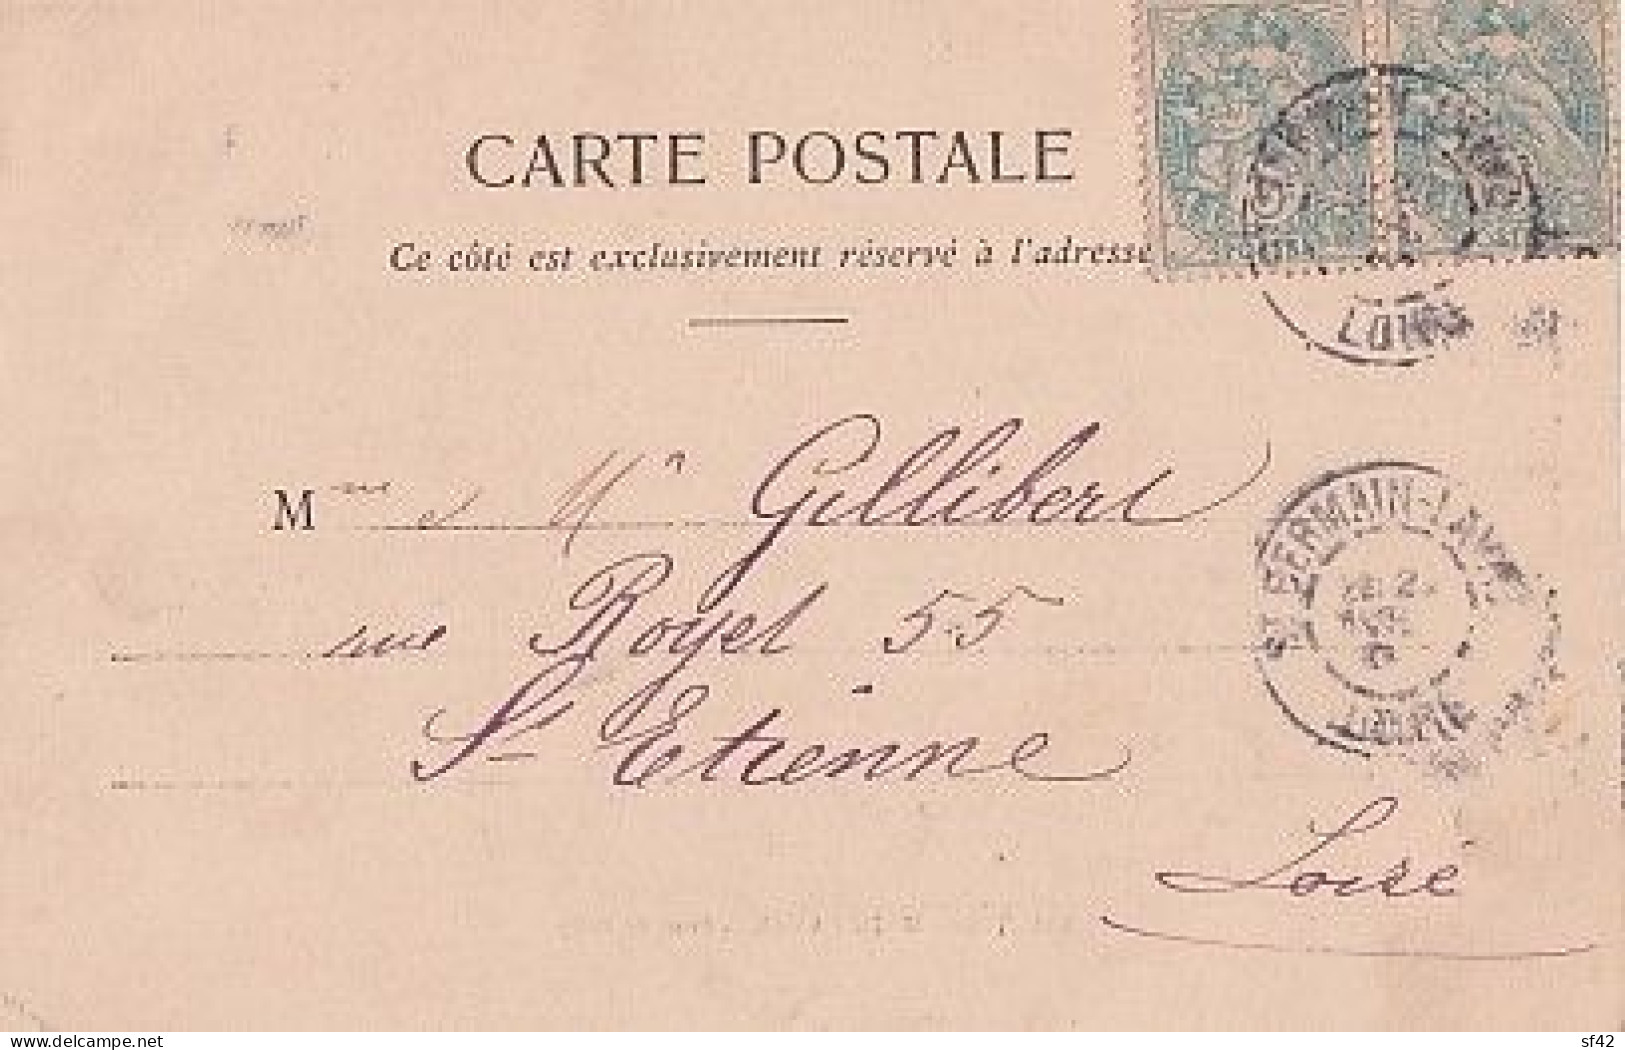 CARTE POSTALE
Ce côté est exclusivement réservé à l'adresse
POSTES
LOIRE
Mme & Mr Gillibert
rue Royet 55
St Etienne
Loire
ST GERMAIN-LAVAL
LOIRE
delcampe.net
sf42